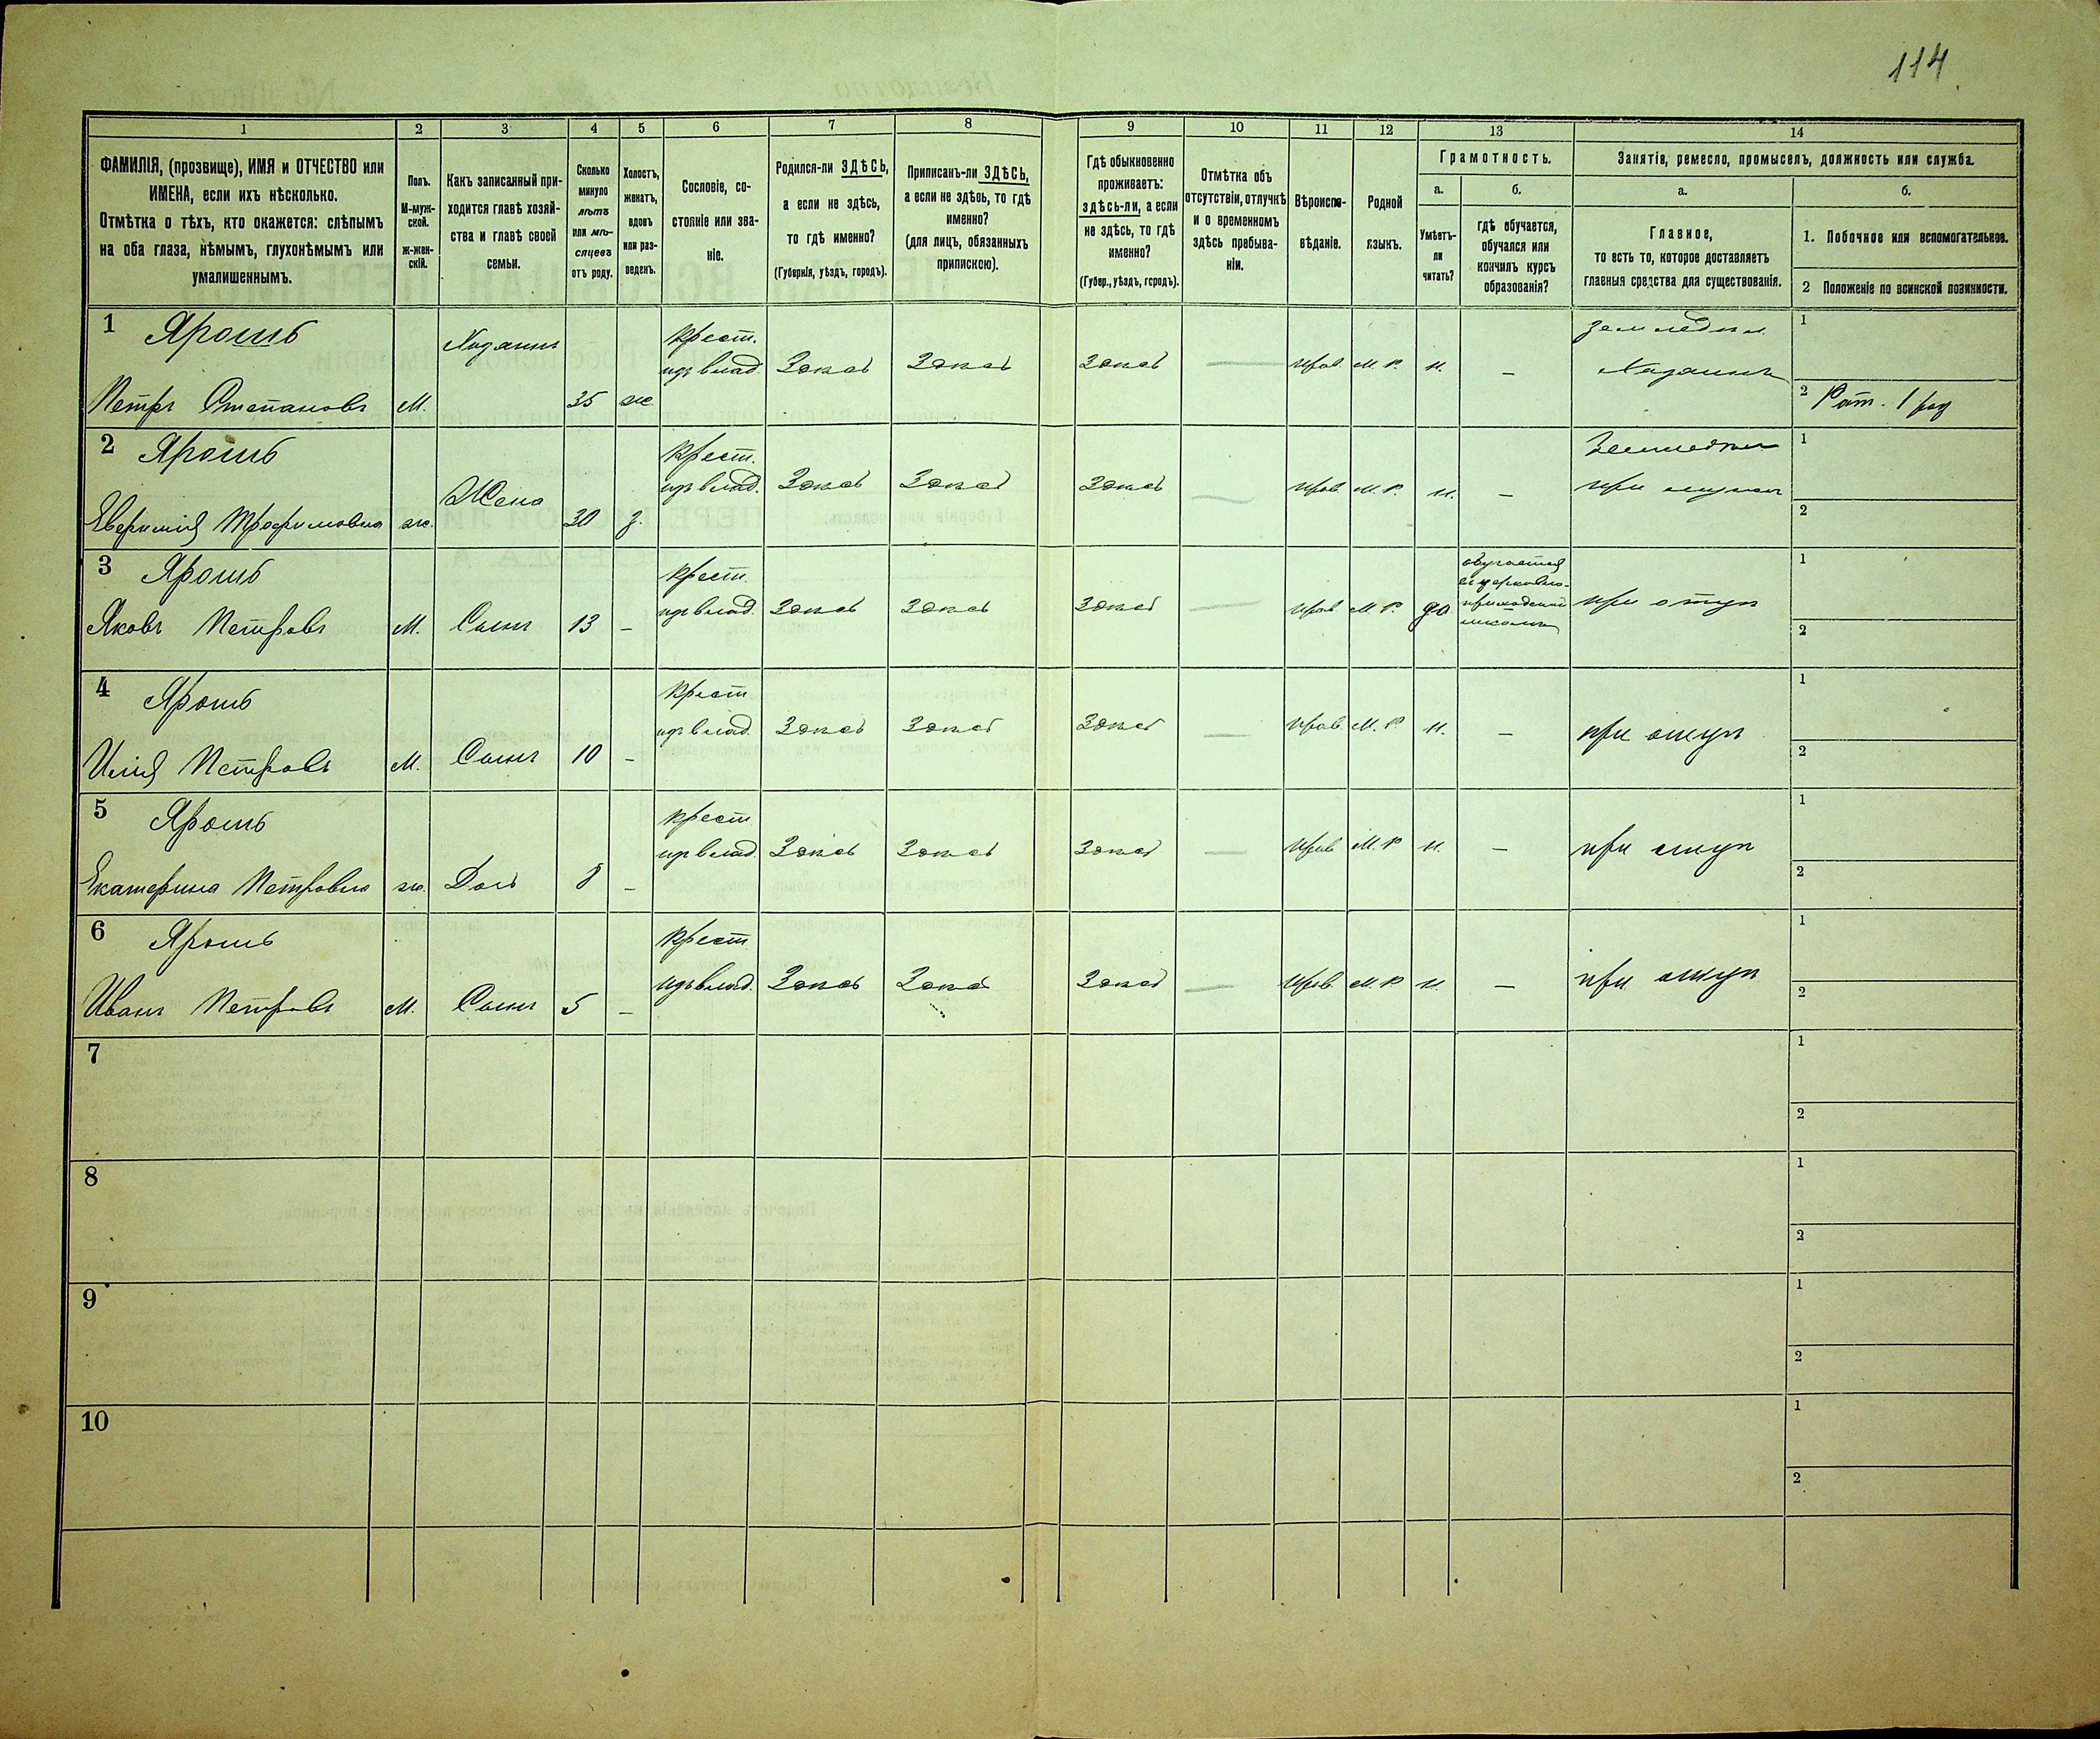 114
1 2 3 4 5 6 7 8 9 10 11 12 13 14
ФАМИЛІЯ, (прозвище), ИМЯ и ОТЧЕСТВО или
ИМЕНА, если ихъ нѣсколько.
Отмѣтка о тѣхъ, кто окажется: слѣпымъ
на оба глаза, нѣмымъ, глухонѣмымъ или
умалишеннымъ.
Полъ.
М-муж-
ской.
ж-жен-
скій.
Какъ записанный при-
ходится главѣ хозяй-
ства и главѣ своей
семьи.
Сколько
минуло
лѣтъ
или мѣ-
сяцевъ
отъ роду.
Холостъ,
женатъ,
вдовъ
или раз-
веденъ.
Сословіе, со-
стояніе или зва-
ніе.
Родился-ли ЗДѢСЬ,
а если не здѣсь,
то гдѣ именно?
(Губернія, уѣздъ, городъ).
Приписанъ-ли ЗДѢСЬ,
а если не здѣсь, то гдѣ
именно?
(для лицъ, обязанныхъ
припискою).
Гдѣ обыкновенно
проживаетъ:
здѣсь-ли, а если
не здѣсь, то гдѣ
именно?
(Губер., уѣздъ, городъ).
Отмѣтка объ
отсутствіи, отлучкѣ
и о временномъ
здѣсь пребыва-
ніи.
Вѣроиспо-
вѣданіе.
Родной
языкъ.
Грамотность.
а.
Умѣетъ-
ли
читать?
б.
гдѣ обучается,
обучался или
кончилъ курсъ
образованія?
Занятіе, ремесло, промыселъ, должность или служба.
а.
Главное,
то есть то, которое доставляетъ
главныя средства для существованія.
б.
1. Побочное или вспомогательное.
2 Положеніе по воинской повинности.
1 Ярошъ
Петръ Степановъ
М.
Хозяинъ
35
ж.
Крест.
изъ влад.
Здѣсь
Здѣсь
Здѣсь
—
прав.
М. Р.
н.
—
Хозяинъ
1
2 Рат. 1 раз
2 Ярошъ
Евфимія Трофимовна
ж.
Жена
30
з.
Крест.
изъ влад.
Здѣсь
Здѣсь
Здѣсь
—
прав
М. Р.
н.
—
1
2
3 Ярошъ
Яковъ Петровъ
М.
Сынъ
13
—
Крест.
изъ влад.
Здѣсь
Здѣсь
Здѣсь
—
прав
М. Р.
да
обучается
въ церковно-
приходской
школѣ
при отцѣ
1
2
4 Ярошъ
Илія Петровъ
М.
Сынъ
10
—
Крест
изъ влад.
Здѣсь
Здѣсь
Здѣсь
—
прав
М. Р
н.
—
при отцѣ
1
2
5 Ярошъ
Екатерина Петровна
ж.
Дочь
8
—
Крест
изъ влад.
Здѣсь
Здѣсь
Здѣсь
—
прав
М. Р
н.
—
при отцѣ
1
2
6 Ярошъ
Иванъ Петровъ
М.
Сынъ
5
—
Крест
изъ влад.
Здѣсь
Здѣсь
Здѣсь
—
прав
М. Р
н.
—
при отцѣ
1
2
7
1
2
8
1
2
9
1
2
10
1
2